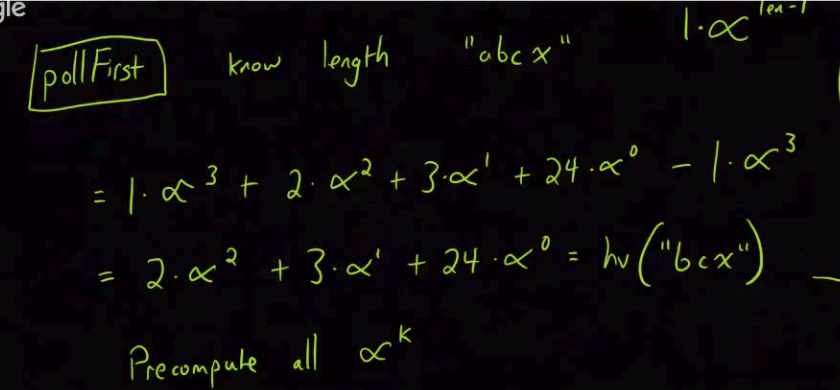 gle
pollFirst know length "abcx" 1·α^len-1
= 1·α³ + 2·α² + 3·α¹ + 24·α⁰ - 1·α³
= 2·α² + 3·α¹ + 24·α⁰ = hv("bcx")
Precompute all α^k